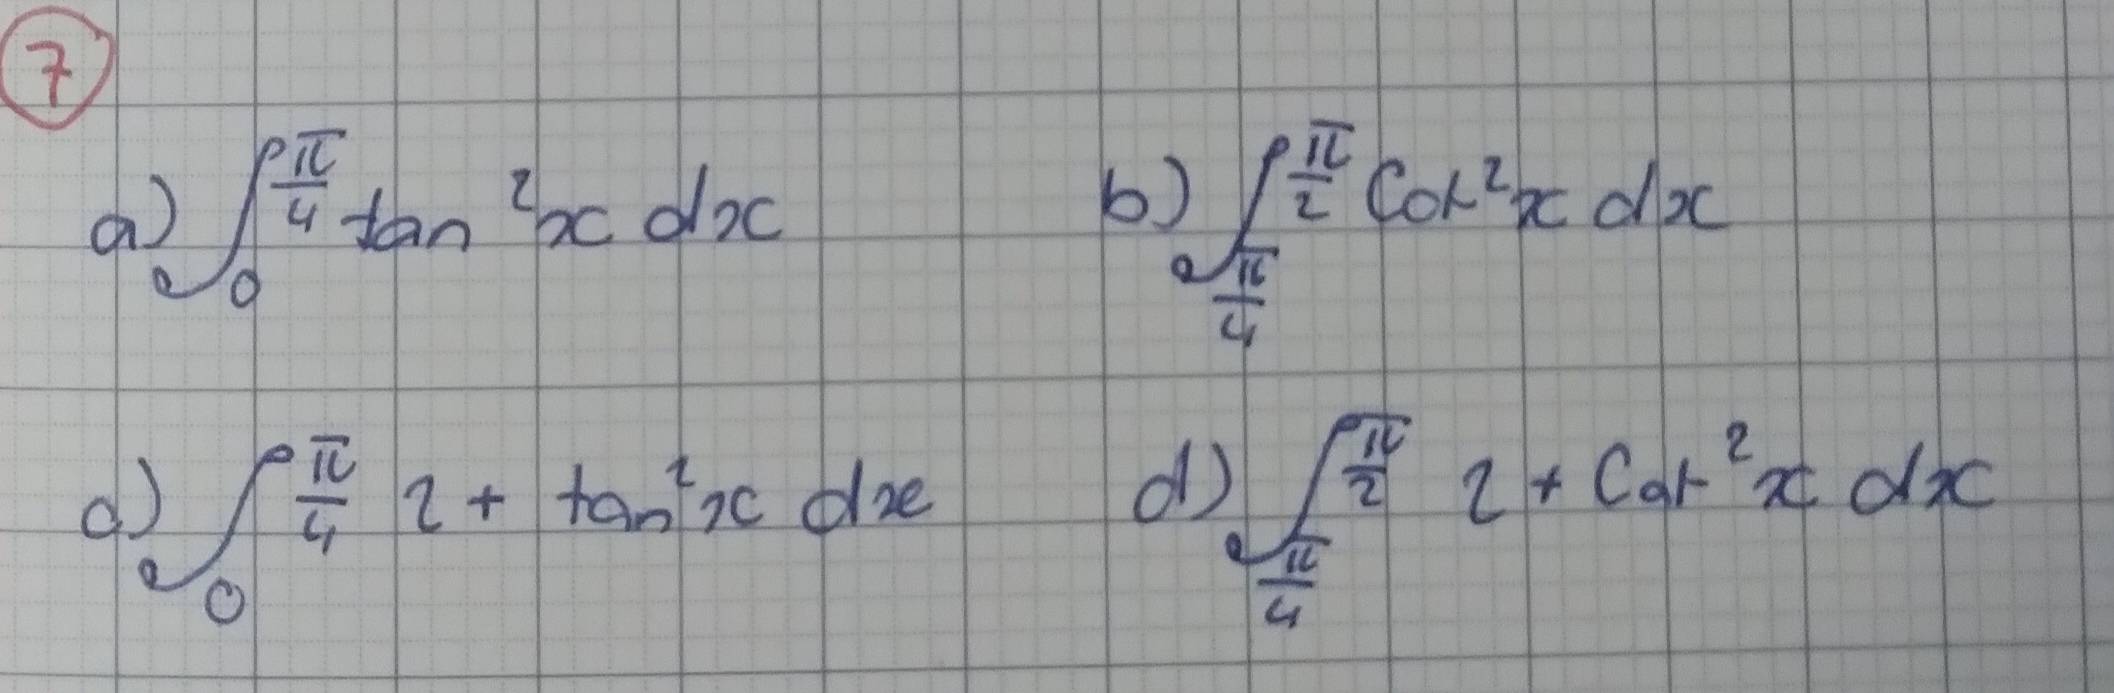 7
a) ∫₀^(π/4) tan²x dx b) ∫_(π/4)^(π/2) Cot²x dx
c) ∫₀^(π/4) 2 + tan²x dx d) ∫_(π/4)^(π/2) 2 + Cot²x dx